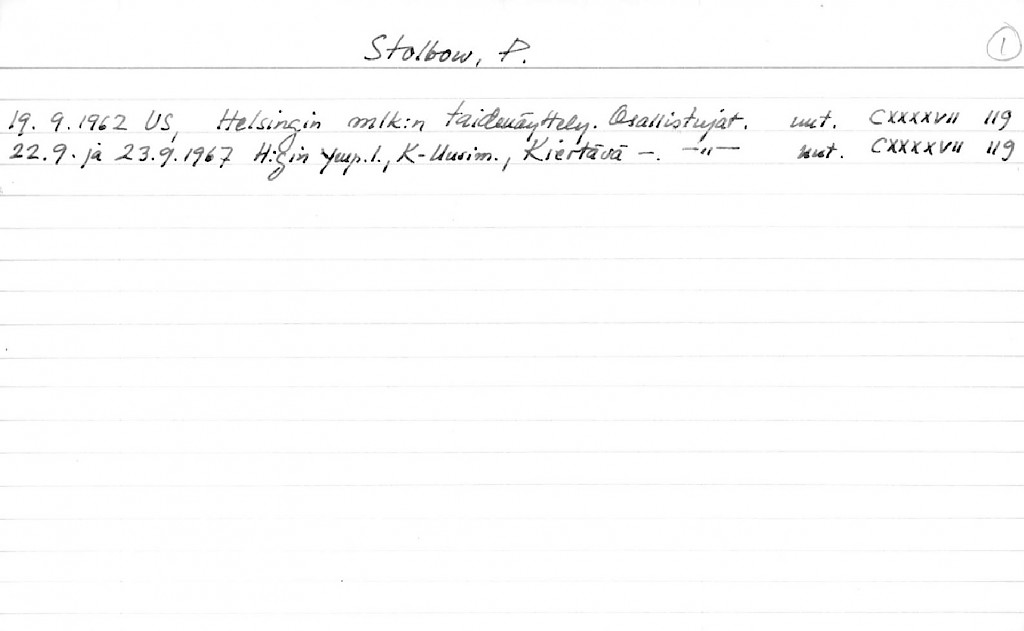 Stolbow, P.
1
19. 9. 1962 US, Helsingin mlk:n taidenäyttely. Osallistujat. uut. CXXXXVII 119
22.9. ja 23.9.1967 H:gin ymp.l., K-Uusim., Kiertävä —. —"— uut. CXXXXVII 119